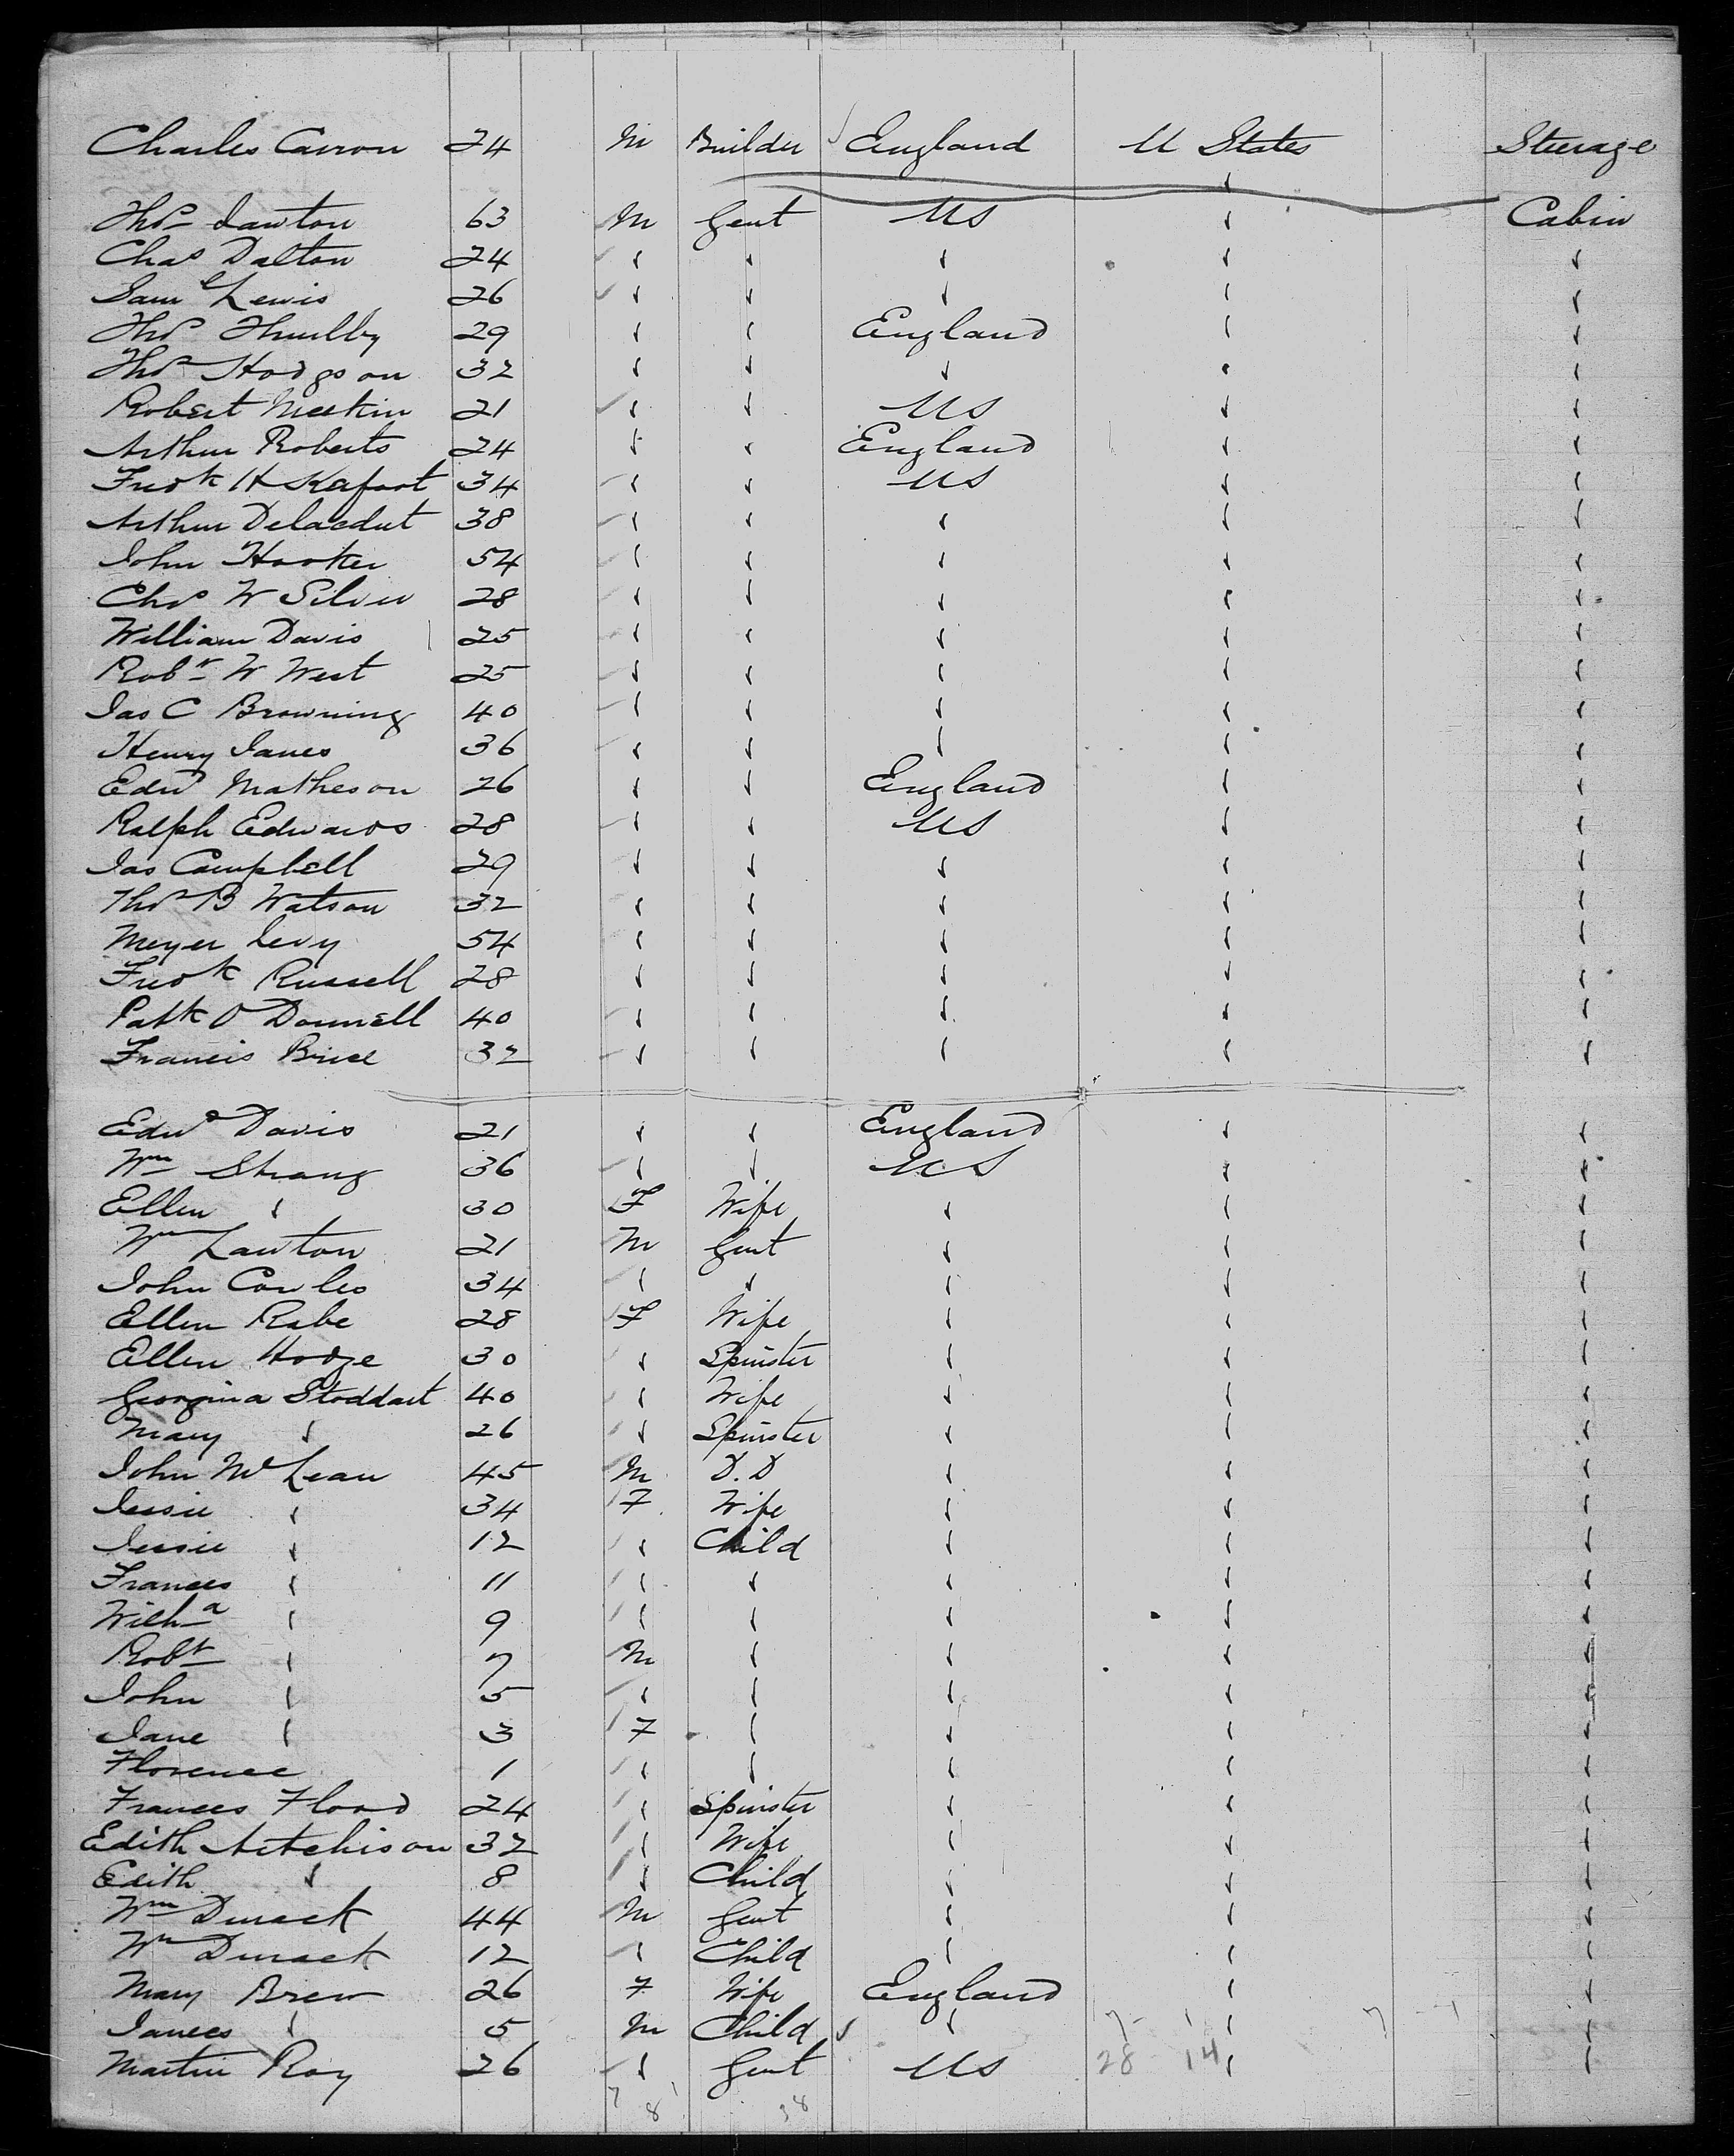 Charles Carron 24 M Builder England U States Steerage
Thos Lawton 63 M Gent US ✓ Cabin
Chas Dalton 24 ✓ ✓ ✓ ✓ ✓
Saml Lewis 26 ✓ ✓ ✓ ✓ ✓
Thos 29 ✓ ✓ England ✓ ✓
Thos Hodgson 32 ✓ ✓ ✓ ✓ ✓
Robert 21 ✓ ✓ US ✓ ✓
Arthur Roberts 24 ✓ ✓ England ✓ ✓
Fredk H 34 ✓ ✓ US ✓ ✓
Arthur 38 ✓ ✓ ✓ ✓ ✓
John Hooker 54 ✓ ✓ ✓ ✓ ✓
Chas W Silver 28 ✓ ✓ ✓ ✓ ✓
William Davis 25 ✓ ✓ ✓ ✓ ✓
Robt W West 25 ✓ ✓ ✓ ✓ ✓
Jas C Browning 40 ✓ ✓ ✓ ✓ ✓
Henry Janes 36 ✓ ✓ ✓ ✓ ✓
Edwd Matheson 26 ✓ ✓ England ✓ ✓
Ralph Edwards 28 ✓ ✓ US ✓ ✓
Jas Campbell 29 ✓ ✓ ✓ ✓ ✓
Thos B Watson 32 ✓ ✓ ✓ ✓ ✓
Meyer Levy 54 ✓ ✓ ✓ ✓ ✓
Fredk Russell 28 ✓ ✓ ✓ ✓ ✓
Patk O Donnell 40 ✓ ✓ ✓ ✓ ✓
Francis Brice 32 ✓ ✓ ✓ ✓ ✓
Edwd Davis 21 ✓ ✓ England ✓ ✓
Wm Strang 36 ✓ ✓ US ✓ ✓
Ellen ✓ 30 F Wife ✓ ✓ ✓
Wm Lawton 21 M Gent ✓ ✓ ✓
John Cowles 34 ✓ ✓ ✓ ✓ ✓
Ellen Rabe 28 F Wife ✓ ✓ ✓
Ellen Hodge 30 ✓ Spinster ✓ ✓ ✓
Georgina Stoddart 40 ✓ Wife ✓ ✓ ✓
Mary ✓ 26 ✓ Spinster ✓ ✓ ✓
John McLean 45 M D.D ✓ ✓ ✓
Jessie ✓ 34 F Wife ✓ ✓ ✓
Jessie ✓ 12 ✓ Child ✓ ✓ ✓
Frances ✓ 11 ✓ ✓ ✓ ✓ ✓
Wilha ✓ 9 ✓ ✓ ✓ ✓ ✓
Robt ✓ 7 M ✓ ✓ ✓ ✓
John ✓ 5 ✓ ✓ ✓ ✓ ✓
Jane ✓ 3 F ✓ ✓ ✓ ✓
Florence 1 ✓ ✓ ✓ ✓ ✓
Frances Flood 24 ✓ Spinster ✓ ✓ ✓
Edith Aitchison 32 ✓ Wife ✓ ✓ ✓
Edith ✓ 8 ✓ Child ✓ ✓ ✓
Wm Durack 44 M Gent ✓ ✓ ✓
Wm Durack 12 ✓ Child ✓ ✓ ✓
Mary Brew 26 F Wife England ✓ ✓
James ✓ 5 M Child ✓ ✓ ✓
Martin Roy 26 ✓ Gent US 28 14 ✓ ✓